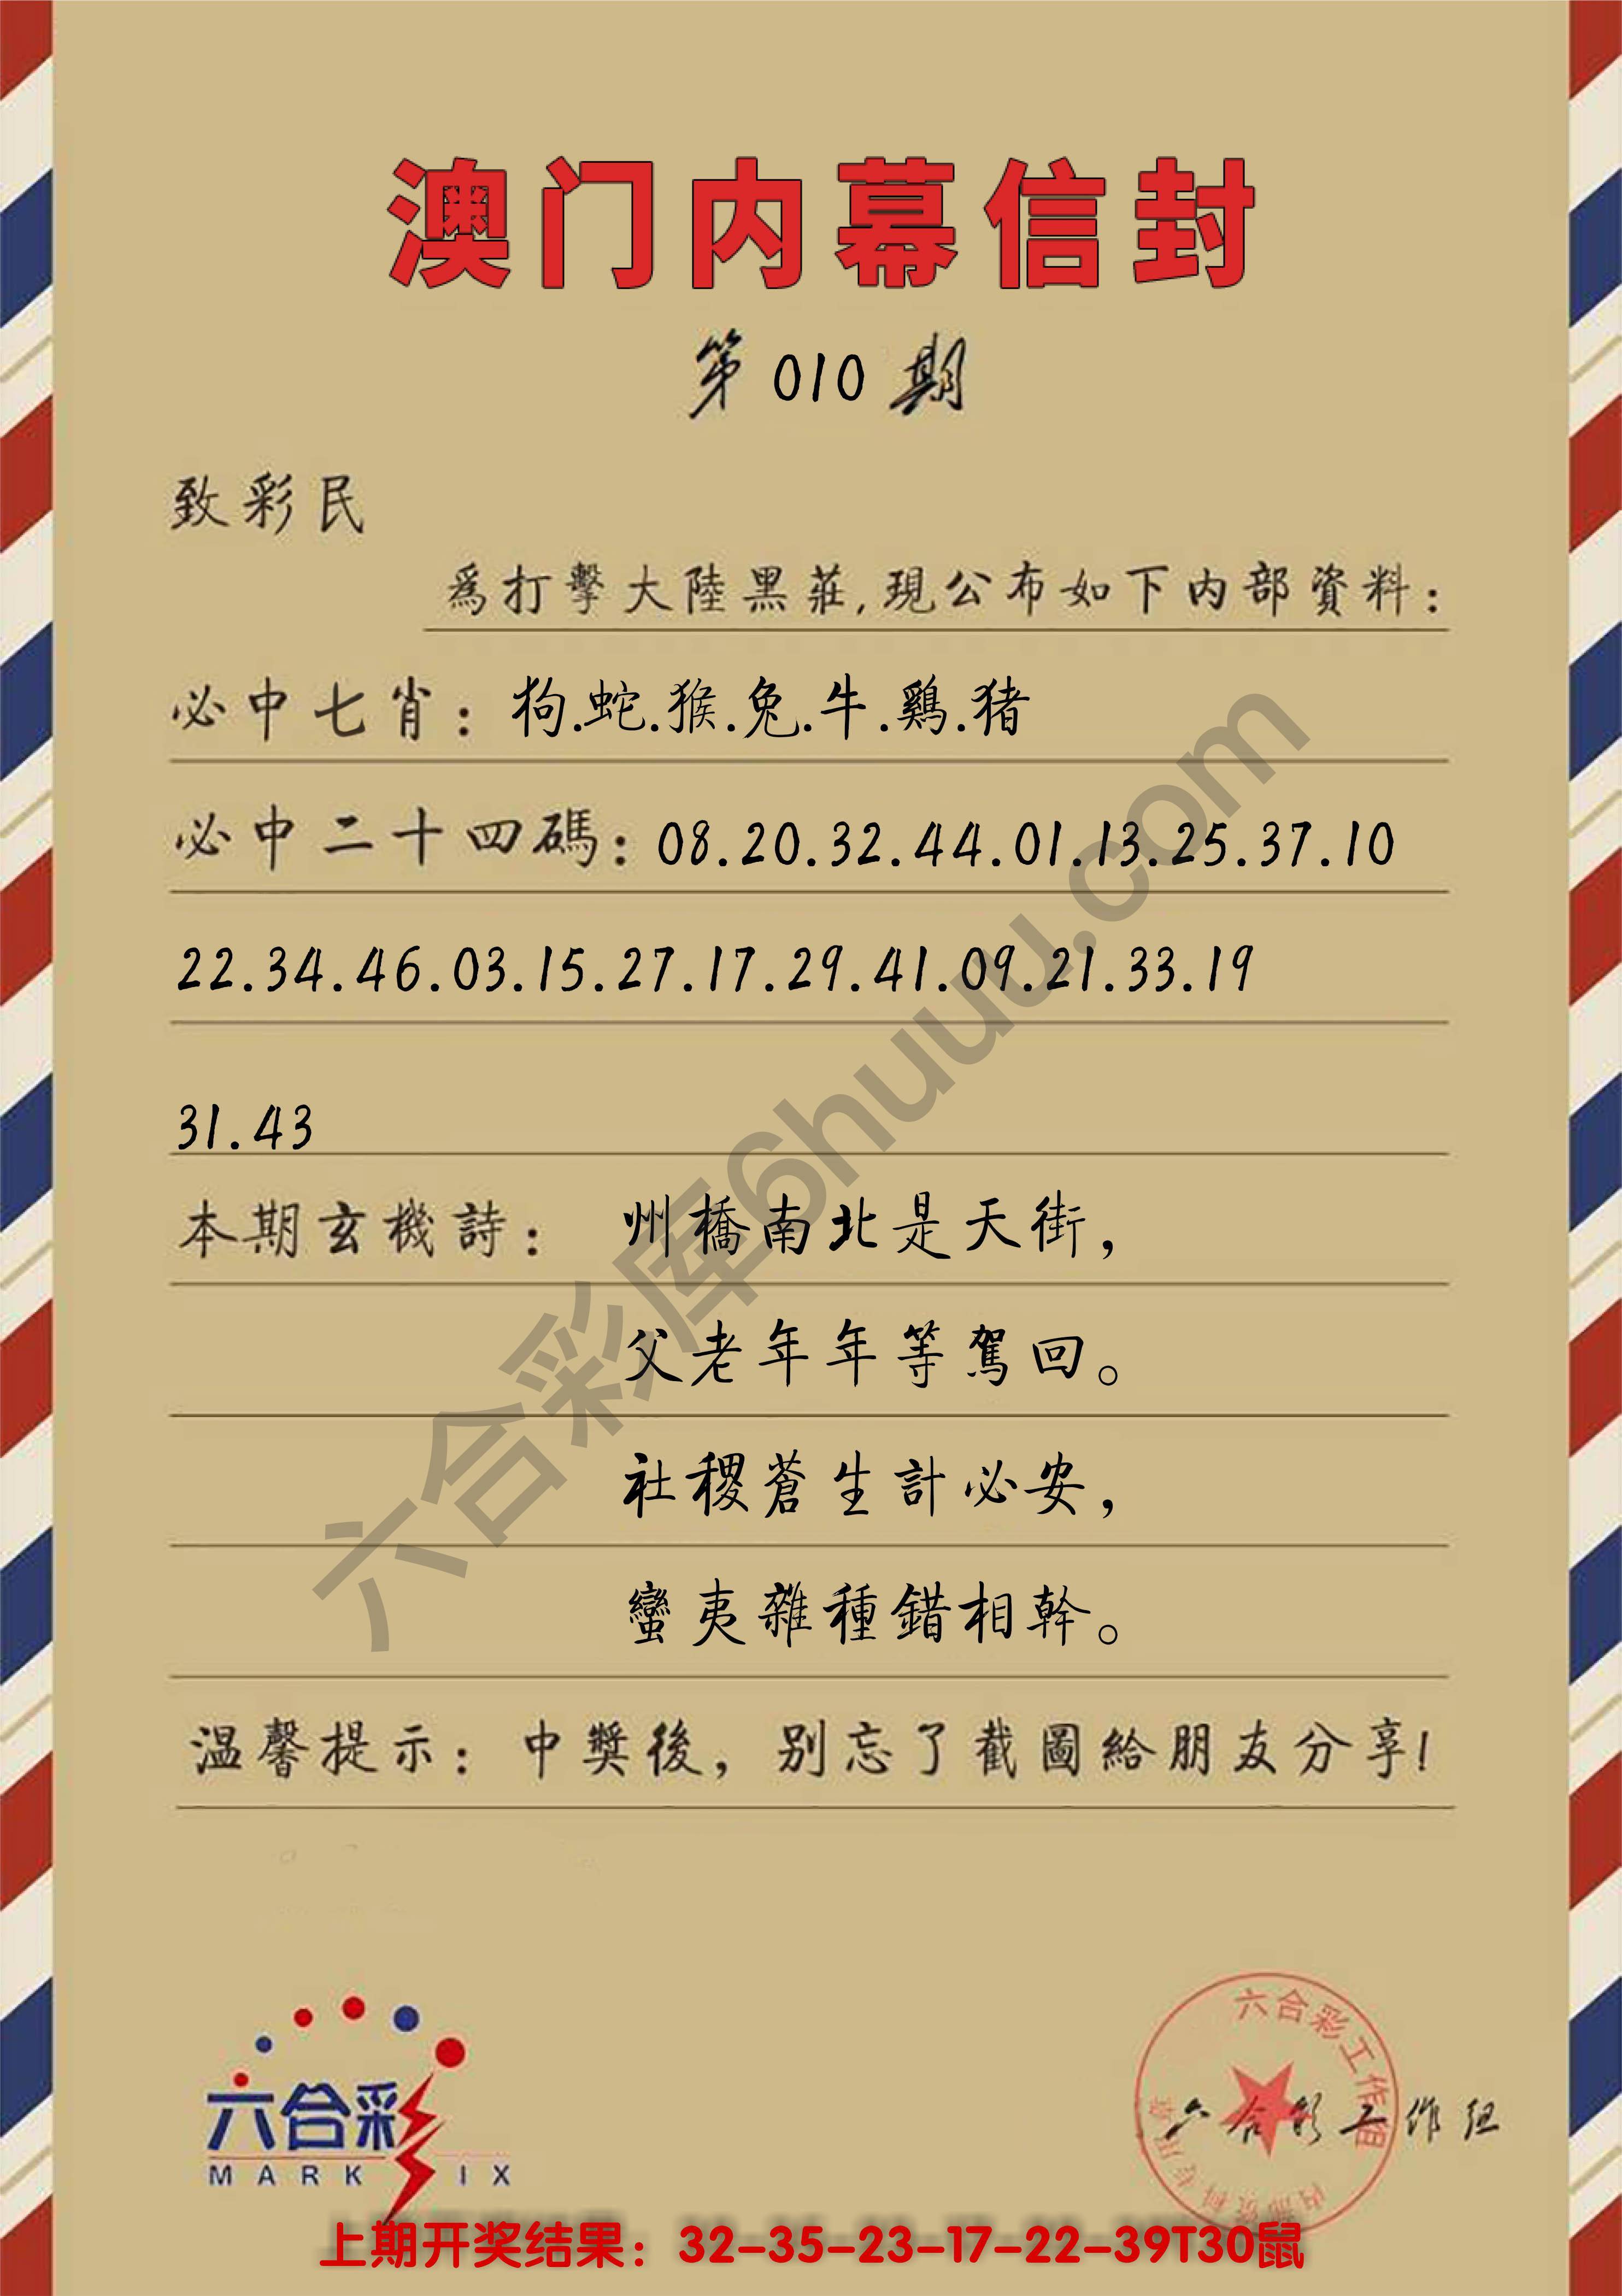 澳门内幕信封
第010期
致彩民
爲打擊大陸黑莊,現公布如下内部資料:
必中七肖: 狗.蛇.猴.兔.牛.鷄.猪
必中二十四碼: 08.20.32.44.01.13.25.37.10
22.34.46.03.15.27.17.29.41.09.21.33.19
31.43
本期玄機詩: 州橋南北是天街,
父老年年等駕回。
社稷蒼生計必安,
蠻夷雜種錯相幹。
温馨提示: 中獎後,别忘了截圖給朋友分享!
六合彩库6huuu.com
六合彩
MARK IX
六合彩工作组
内部资料专用章
六合彩工作组
上期开奖结果：32-35-23-17-22-39T30鼠